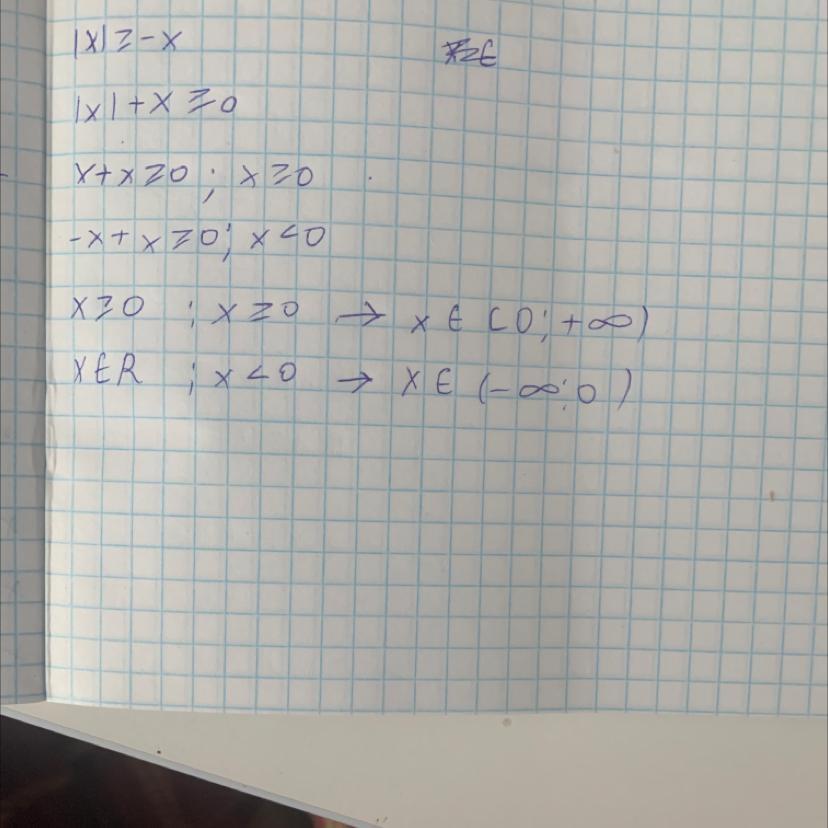 |x| ≥ -x
|x| + x ≥ 0
x + x ≥ 0 ; x ≥ 0
-x + x ≥ 0 ; x < 0
x ≥ 0 ; x ≥ 0 → x ∈ [0; +∞)
x ∈ R ; x < 0 → x ∈ (-∞; 0)